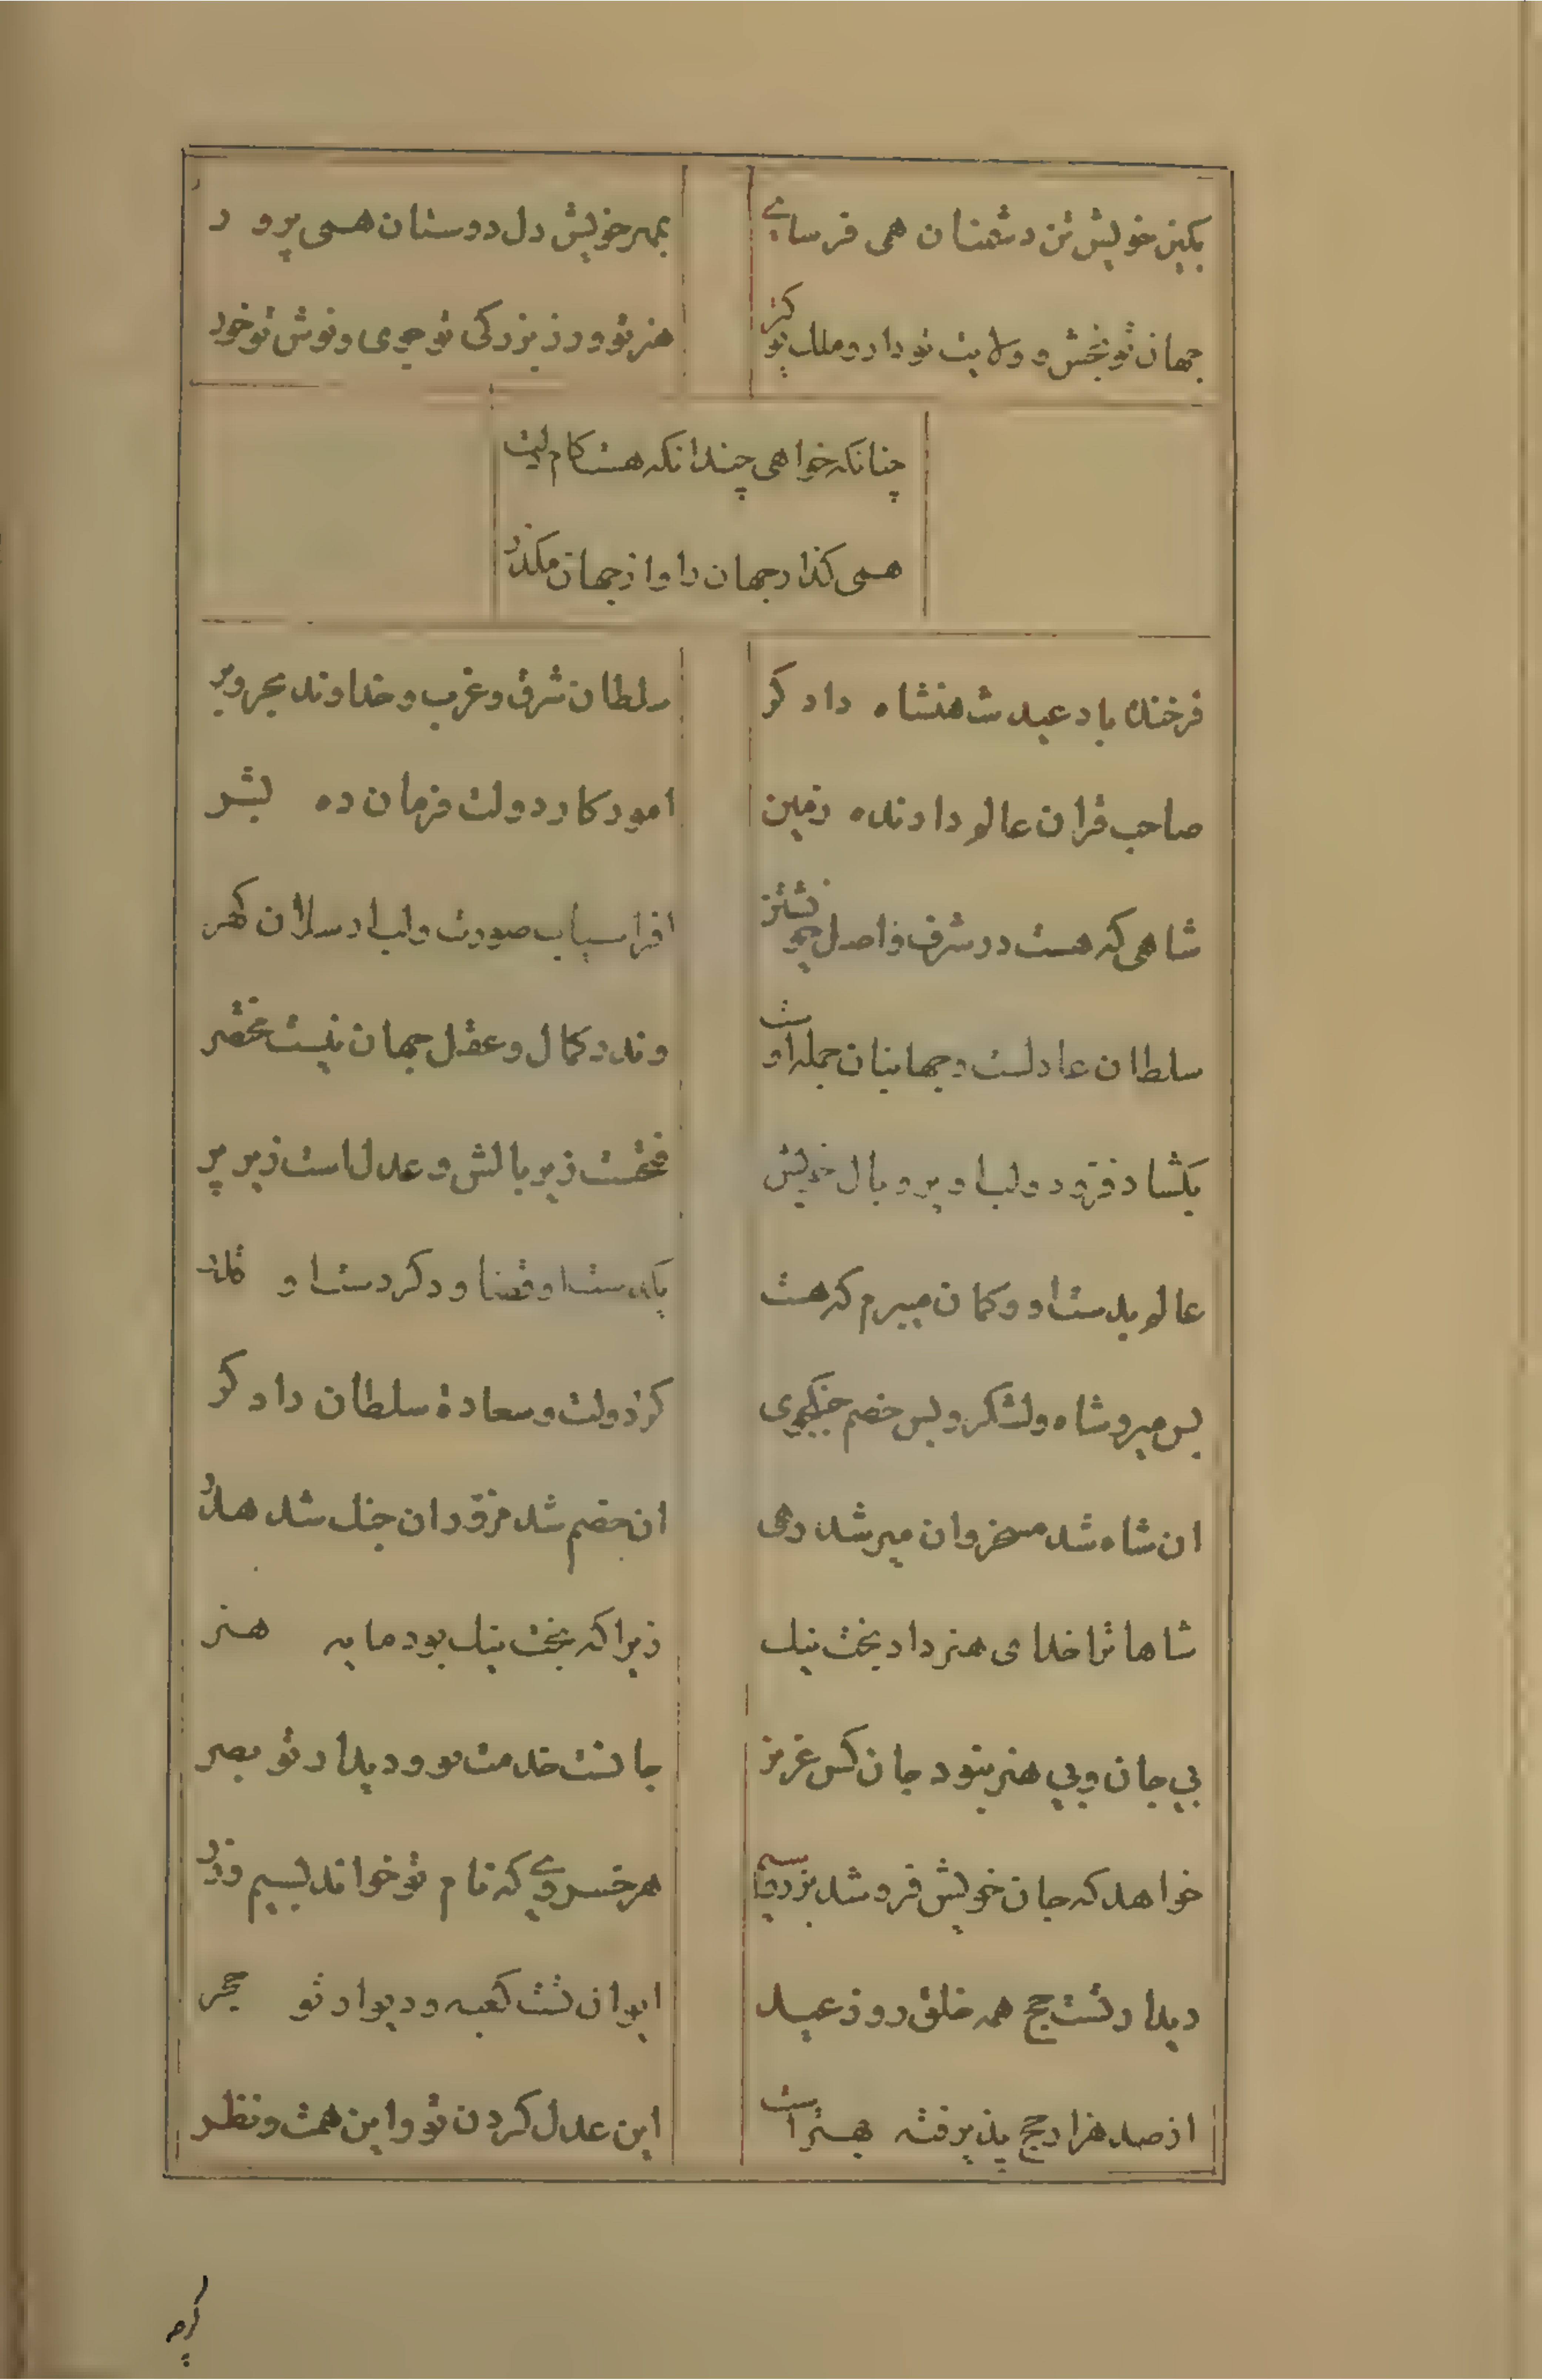 بکین خویش تن دشمنان همی فرسای
بمهر خویش دل دوستان همی پرور
جهان تو بخش و ولایت تو دار و ملک تو کیر
هنر تو ورز بزرکی تو جوی و نوش تو خور
چنانکه خواهی چندانکه هست کام لیت
همی کذار جهان را و از جهان مکذر
فرخنده باد عید شاهنشاه دادکر
سلطان شرق و غرب و خداوند بحر و بر
صاحب قران عالم دارنده زمین
امورکار دولت فرمان ده بشر
شاهی که هست در شرف و اصل چو
افراسیاب صورت و الب ارسلان کهر
سلطان عادلست و جهانیان جمله اوست
وندر کمال و عقل جهان نیست مختصر
بکشاد فر دولت او پر و بال خویش
فتحست زیر بالش و عدل است زیر پر
عالم بدست او و کمان میبرم که هست
یکدست او قضا و دکر دست او قدر
بس میر و شاه و لشکر و بس خصم جنکجوی
کز دولت و سعادة سلطان دادکر
ان شاه شد مسخر و ان میر شد رهی
ان خصم شد مزور ان جنک شد هدر
شاها ترا خدای هنر داد بخت نیک
زیرا که بخت نیک بود مایه هنر
بی جان و بی هنر نبود جان کس عزیز
جانست خدمت تو و دیدار تو بصر
خواهد که جان خویش فروشد بزر و سیم
هر خسروی که نام تو خواند بسیم و زر
دیدار تست حج همه خلق روز عید
ایوان تست کعبه و دیوار تو حجر
از صد هزار حج پذیرفته بهتر است
این عدل کردن تو و این همت و نظر
کرچه